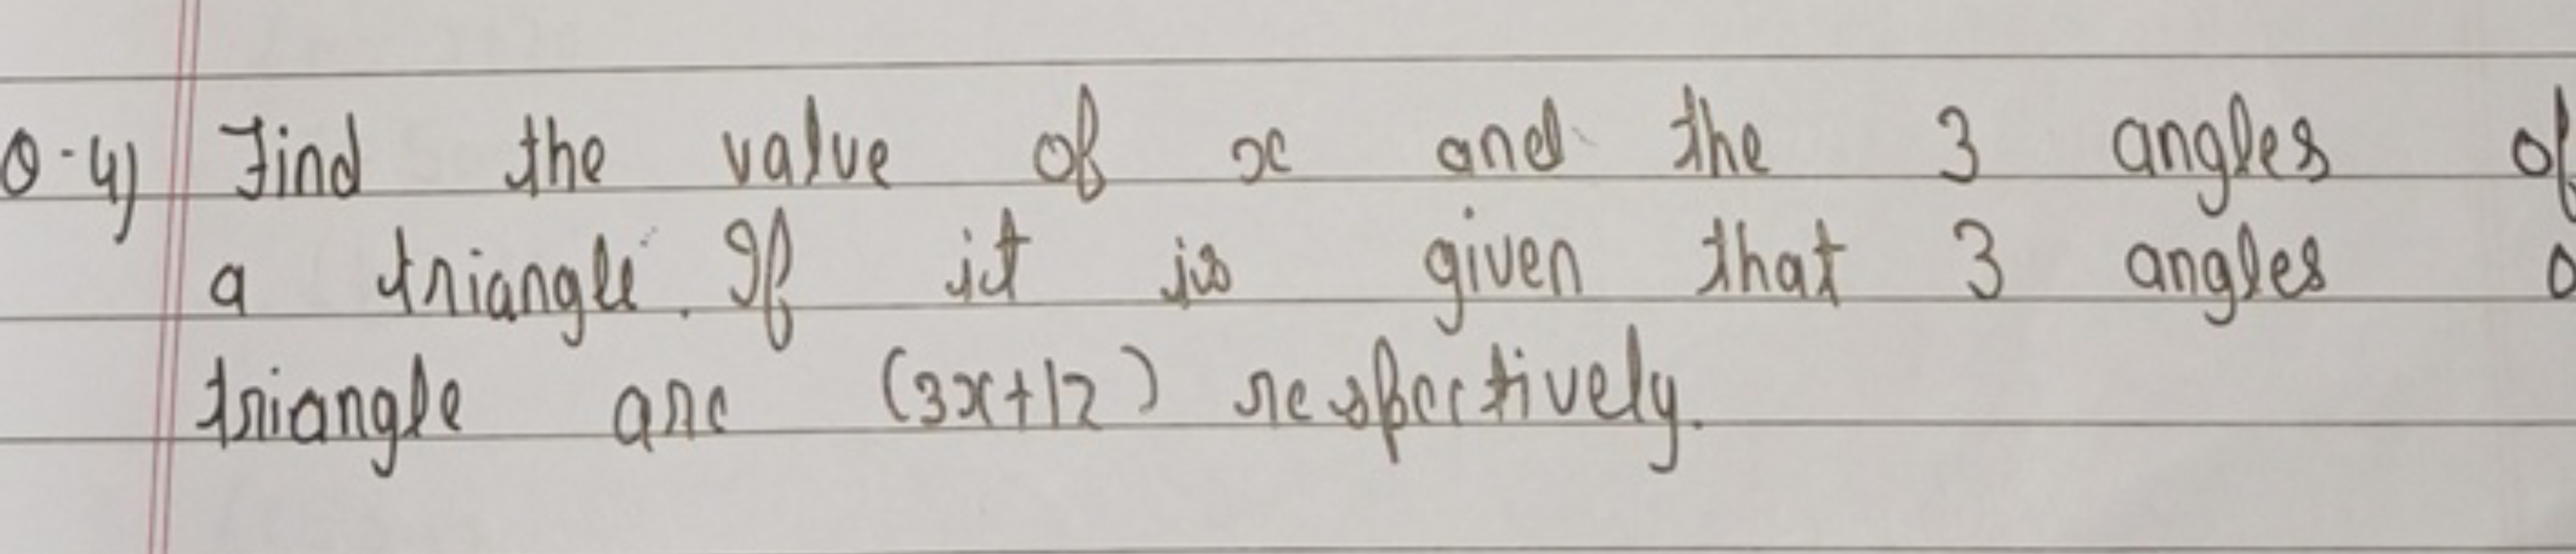 Q-4) Find the value of x and the 3 angles of
a triangle. If it is given that 3 angles
triangle are (3x+12) respectively.